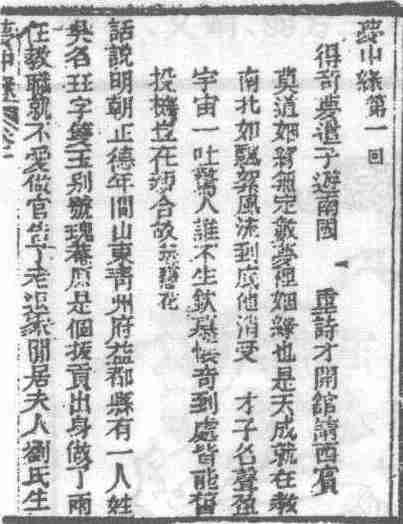 夢中緣第一回
得奇夢遣子遊南國　重詩才開館請西賓
莫道姻緣無定數夢裡姻緣也是天成就任教
南北如飄絮風流到底他消受　才子名聲盈
宇宙一吐驚人誰不生欽慕懷奇到處皆能售
投機豈在
話說明朝正德年間山東青州府益都縣有一人姓
吳名珏字雙玉別號瑰菴原是個拔貢出身做了兩
任教職就不愛做官告了老退家閒居夫人劉氏生